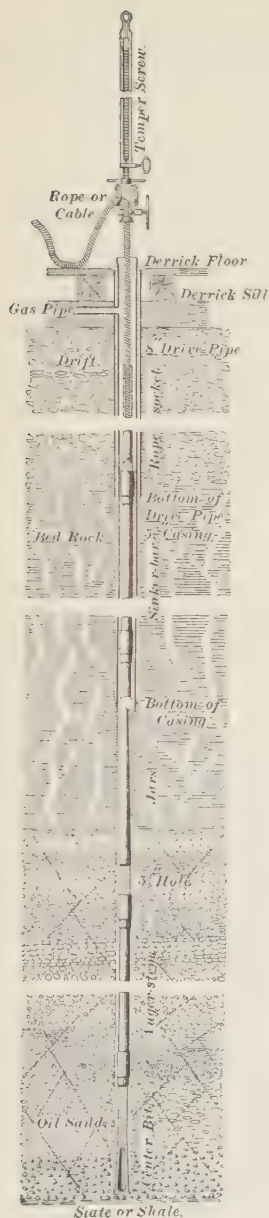 Temper Screw.
Rope or
Cable
Derrick Floor
Derrick Sill
Gas Pipe
Drift.
8" Drive Pipe
Rope socket.
Bottom of
Drive Pipe
Casing
Bed Rock
Sinker-bar
Bottom of
Casing
Jars
5" Hole
Auger-stem
Oil Sands
Center Bit.
Slate or Shale.